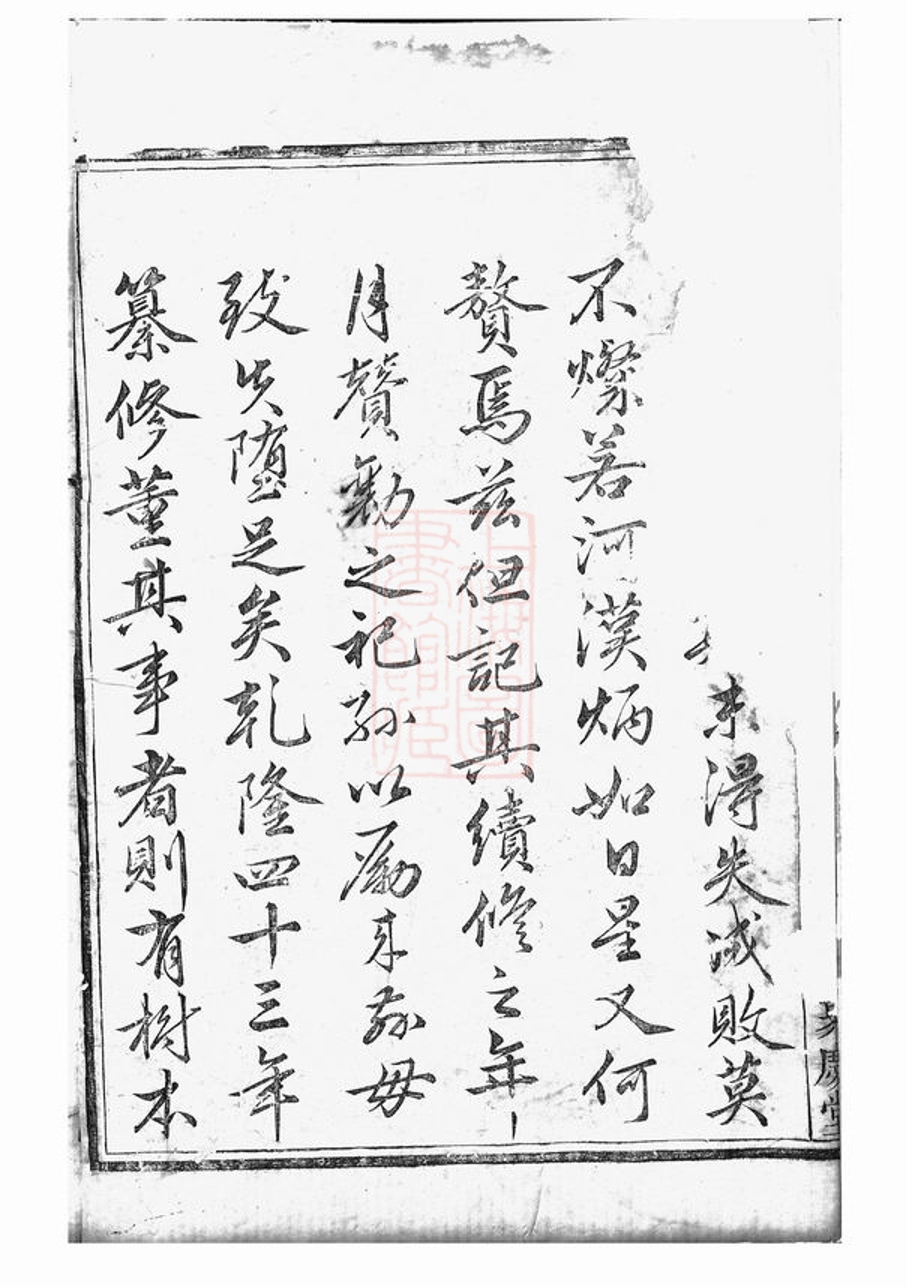 末得失成敗莫
不燦若河漢炳如日星又何
贅焉茲但記其續修之年
月贊勷之祀孫以勵来茲毋
致失墮足矣乾隆四十三年
纂修董其事者則有樹本
慶堂
上海圖書館藏